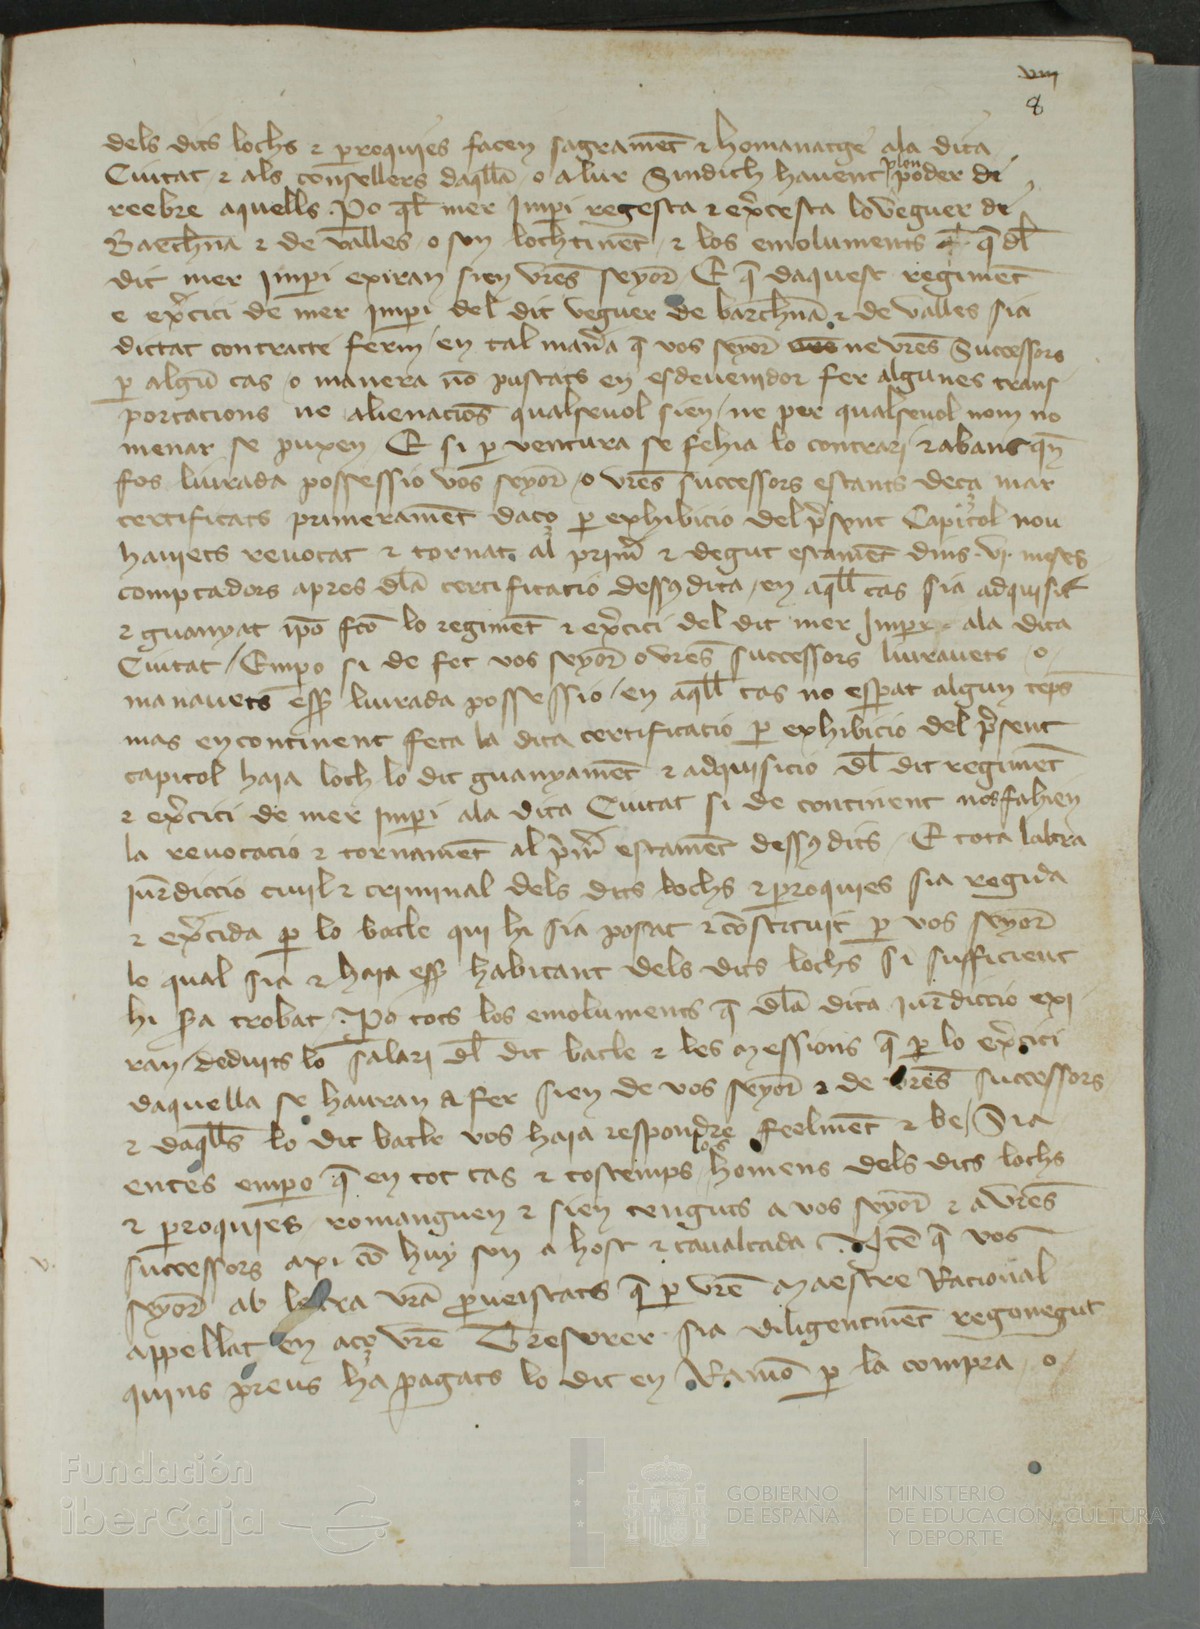 viii
8
dels dits lochs ⁊ ꝑroquies facen sagramēt ⁊ homanatge ala dita
Ciutat ⁊ als consellers daq̄lla o alur Sindich hauent plen poder de
reebre aquells. Po q̄l mer Imperi regesca ⁊ exercesca lo veguer de
Barchna ⁊ de valles o son lochtinēt ⁊ los emoluments q̄ dl̄
dit mer Imperi exiran sien vr̄es seyor E q̄ daquest regimēt
e exercici de mer Imperi del dit veguer de barchna ⁊ de valles sia
dictat contracte ferm en tal manera q̄ vos seyor ne vr̄es Successors
ꝑ algū cas o manera nō puscats en esdeuenidor fer algunes trans
portacions ne alienacions qualseuol sien / ne per qualseuol nom no
menar se puxen E si ꝑ ventura se fehia lo contrari ⁊ abans qn̄
fos liurada possessio vos seyor o vr̄es successors estants deça mar
certificats primeramēt daço ꝑ exhibicio del p̄sent Capitol nou
hauiets reuocat ⁊ tornat al prim̄ ⁊ degut estamēt dins .vj. meses
comptadors apres dl̄a certificacio dessusdita / en aq̄ll cas sia adquisit
⁊ guanyat ip̄o fc̄o lo regimēt ⁊ exercici del dit mer Imperi ala dita
Ciutat / Empo si de fet vos seyor o vr̄es successors liurauets o
manauets esser liurada possessio / en aq̄ll cas no esperat algun temps
mas encontinent feta la dita certificacio ꝑ exhibicio del p̄sent
capitol haia loch lo dit guanyamēt ⁊ adquisicio dl̄ dit regimēt
⁊ exercici de mer Imperi ala dita Ciutat si de continent nos fahien
la reuocacio ⁊ tornamēt al prim̄ estamēt dessusdits. E tota laltra
jurediccio ciuil ⁊ criminal dels dits lochs ⁊ ꝑroquies sia regida
⁊ exercida ꝑ lo batle qui hi sia posat ⁊ cōstituit ꝑ vos seyor
lo qual sia ⁊ haia esser habitant dels dits lochs si sufficient
hi sera trobat. Po tots los emoluments q̄ dl̄a dita jurediccio exi
ran / deduits lo salari dl̄ dit batle ⁊ les messions q̄ ꝑ lo exercici
daquella se hauran a fer sien de vos seyor ⁊ de vr̄es successors
⁊ daq̄lls lo dit batle vos haia respondre feelmēt ⁊ be / Sia
entes empero q̄ en tot cas ⁊ tostemps los homens dels dits lochs
⁊ ꝑroquies romanguen ⁊ sien tenguts a vos seyor ⁊ a vr̄es
successors axi cō huy son a host ⁊ caualcada. Itē q̄ vos
v.
seyor ab letra vr̄a ꝓueiscats q̄ ꝑ vr̄e Maestre Racional
appellat en aço vr̄e Tresorer sia diligentmēt regonegut
quins preus ha pagats lo dit en Ramō ꝑ la compra o
Fundación
iberCaja
GOBIERNO
DE ESPAÑA
MINISTERIO
DE EDUCACIÓN, CULTURA
Y DEPORTE